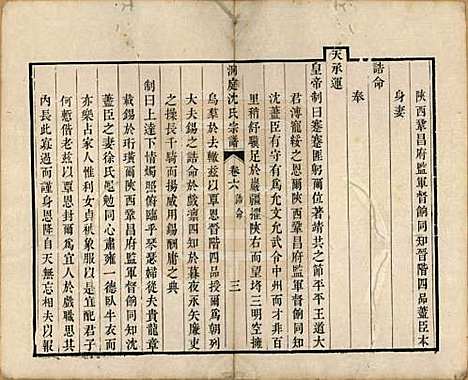 陝西鞏昌府監軍督餉同知晉階四品蓋臣本
身妻
誥命
奉
天承運
皇帝制曰蹇蹇匪躬爾位著靖共之節平平王道大
君溥寵綏之恩爾陝西鞏昌府監軍督餉同知
沈蓋臣有守有為允文允武令中州而才非百
里稍舒驥足於巖疆擢陝右而望埓三明空擁
洞庭沈氏宗譜 卷六 誥命 三
烏羣於去轍茲以覃恩晉階四品爾為朝列
大夫夕錫之誥命於戲四知於暮夜永矢廉吏
之操長千騎而揚威用錫酬庸之典
制曰上達下情先照俯臨乎琴瑟婦從夫貴龍章
載錫於珩璜爾陝西鞏昌府監軍督餉同知沈
蓋臣之妻徐氏黽勉同心肅雍一德臥牛衣而
亦樂占家人惟利女貞襪象服以是宜配君子
何慙偕老茲以覃恩封爾為宜人於戲職思
內長此寡過而謹身恩隆自天無忘相夫以報